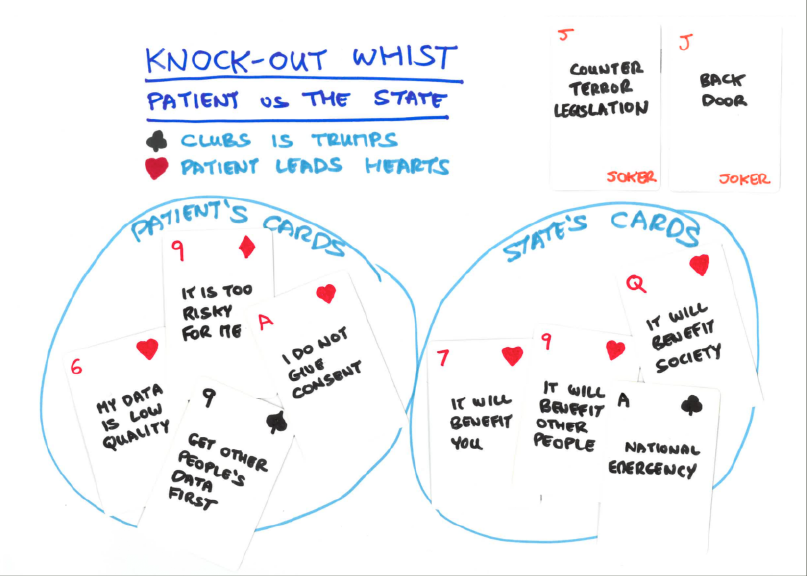 KNOCK-OUT WHIST
PATIENT vs THE STATE
♣ CLUBS IS TRUMPS
♥ PATIENT LEADS HEARTS
J
COUNTER
TERROR
LEGISLATION
JOKER
J
BACK
DOOR
JOKER
PATIENT'S CARDS
9
IT IS TOO
RISKY
FOR ME
A
I DO NOT
GIVE
CONSENT
6
MY DATA
IS LOW
QUALITY
9
GET OTHER
PEOPLE'S
DATA
FIRST
STATE'S CARDS
Q
IT WILL
BENEFIT
SOCIETY
7
IT WILL
BENEFIT
YOU
9
IT WILL
BENEFIT
OTHER
PEOPLE
A
NATIONAL
EMERGENCY